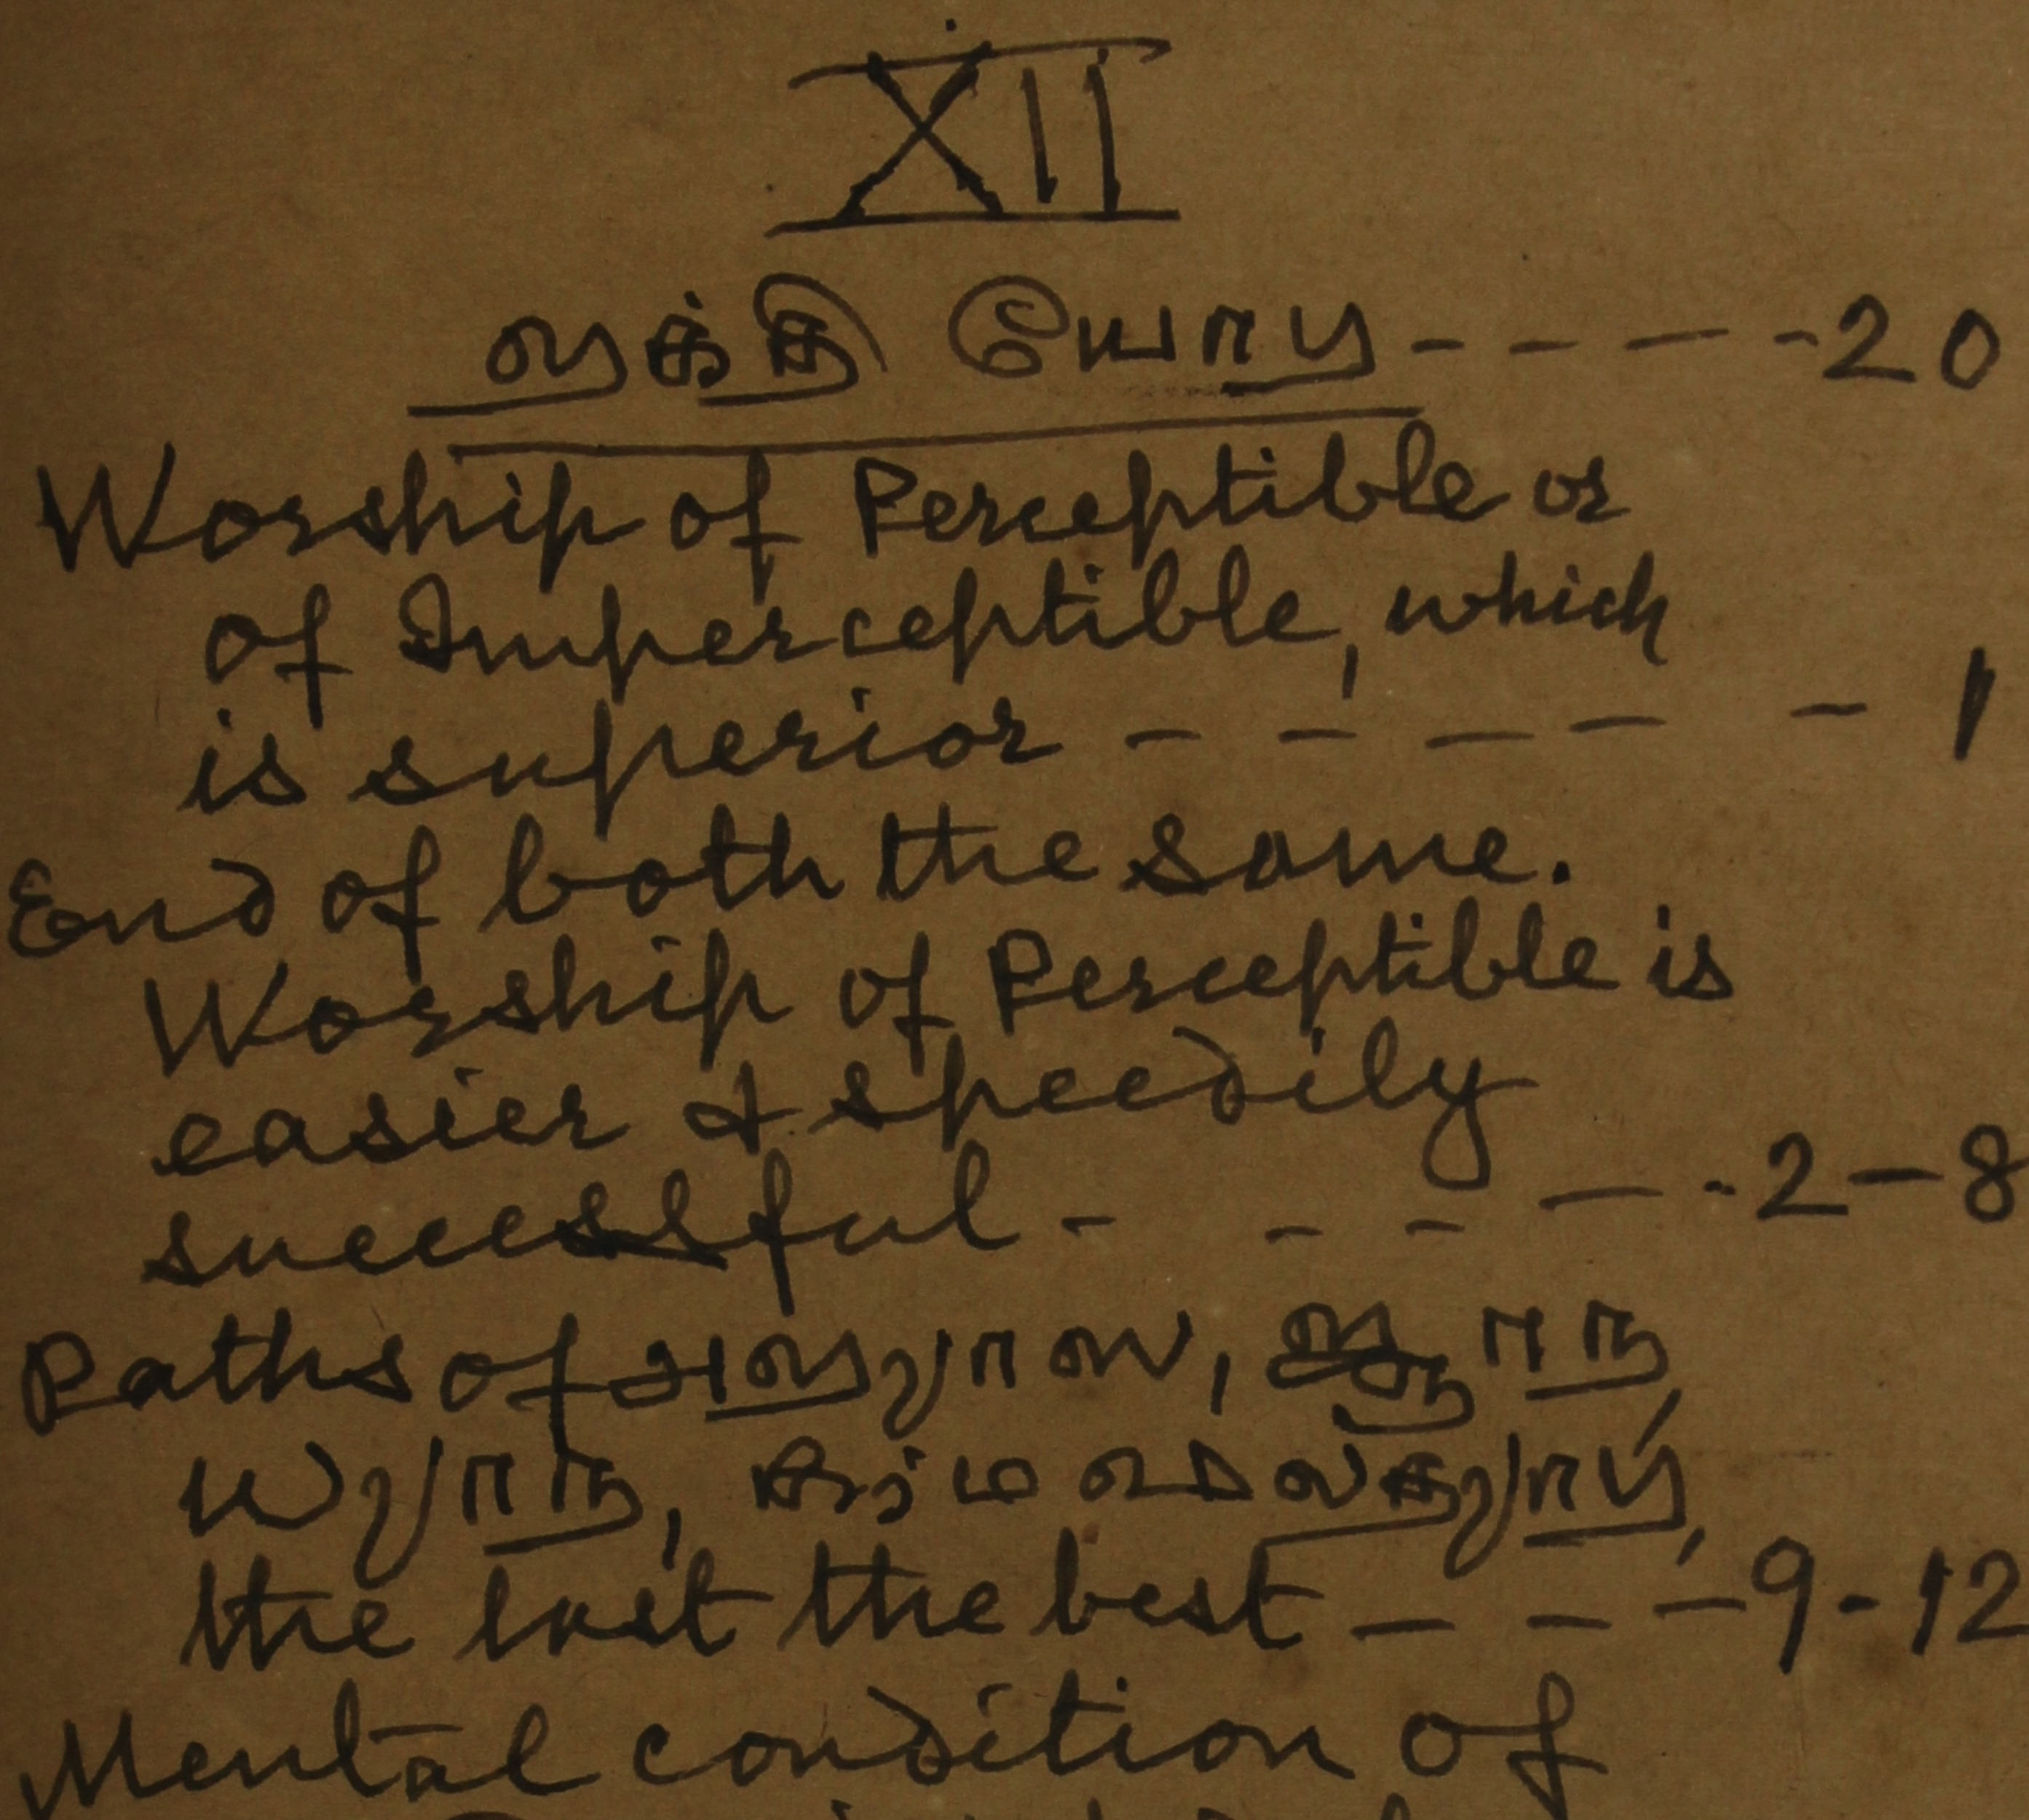 XII
𑌭𑌕𑍍𑌤𑌿 𑌯𑍋𑌗 - - - - - 20
Worship of Perceptible or
of Imperceptible, which
is superior - - - - - 1
End of both the same.
Worship of Perceptible is
easier & speedily
successful - - - - - 2-8
Paths of 𑌅𑌭𑍍𑌯𑌾𑌸, 𑌜𑍍𑌞𑌾𑌨,
𑌧𑍍𑌯𑌾𑌨, 𑌕𑌰𑍍𑌮𑌫𑌲𑌤𑍍𑌯𑌾𑌗,
the last the best - - - 9-12
Mental condition of